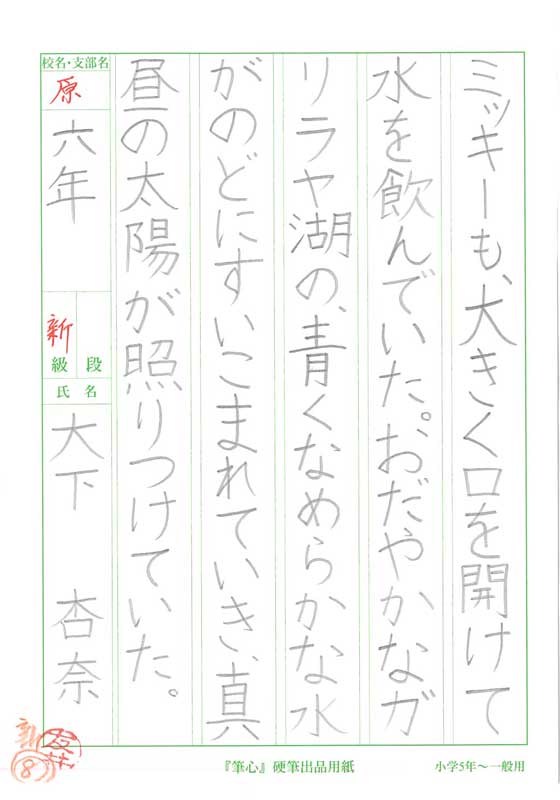 ミッキーも、大きく口を開けて
水を飲んでいた。おだやかなガ
リラヤ湖の、青くなめらかな水
がのどにすいこまれていき、真
昼の太陽が照りつけていた。
校名・支部名
原
六年
新
級
段
氏名
大下 杏奈
新
8
『筆心』硬筆出品用紙
小学5年〜一般用